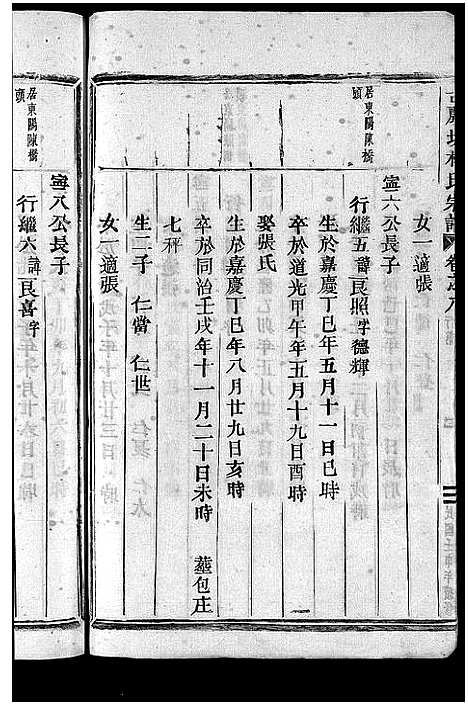 林氏宗譜
女一適張
居東陽陳橋
頭
寧六公長子
行繼五諱良照字德輝
生於嘉慶丁巳年五月十一日巳時
卒於道光甲午年五月十九日酉時
娶張氏
生於嘉慶丁巳年八月廿九日亥時
卒於同治壬戌年十一月二十日未時 葬包庄
七秤
生二子 仁當 仁世
女一適張
居東陽陳橋
頭
寧八公長子
行繼六諱良喜字